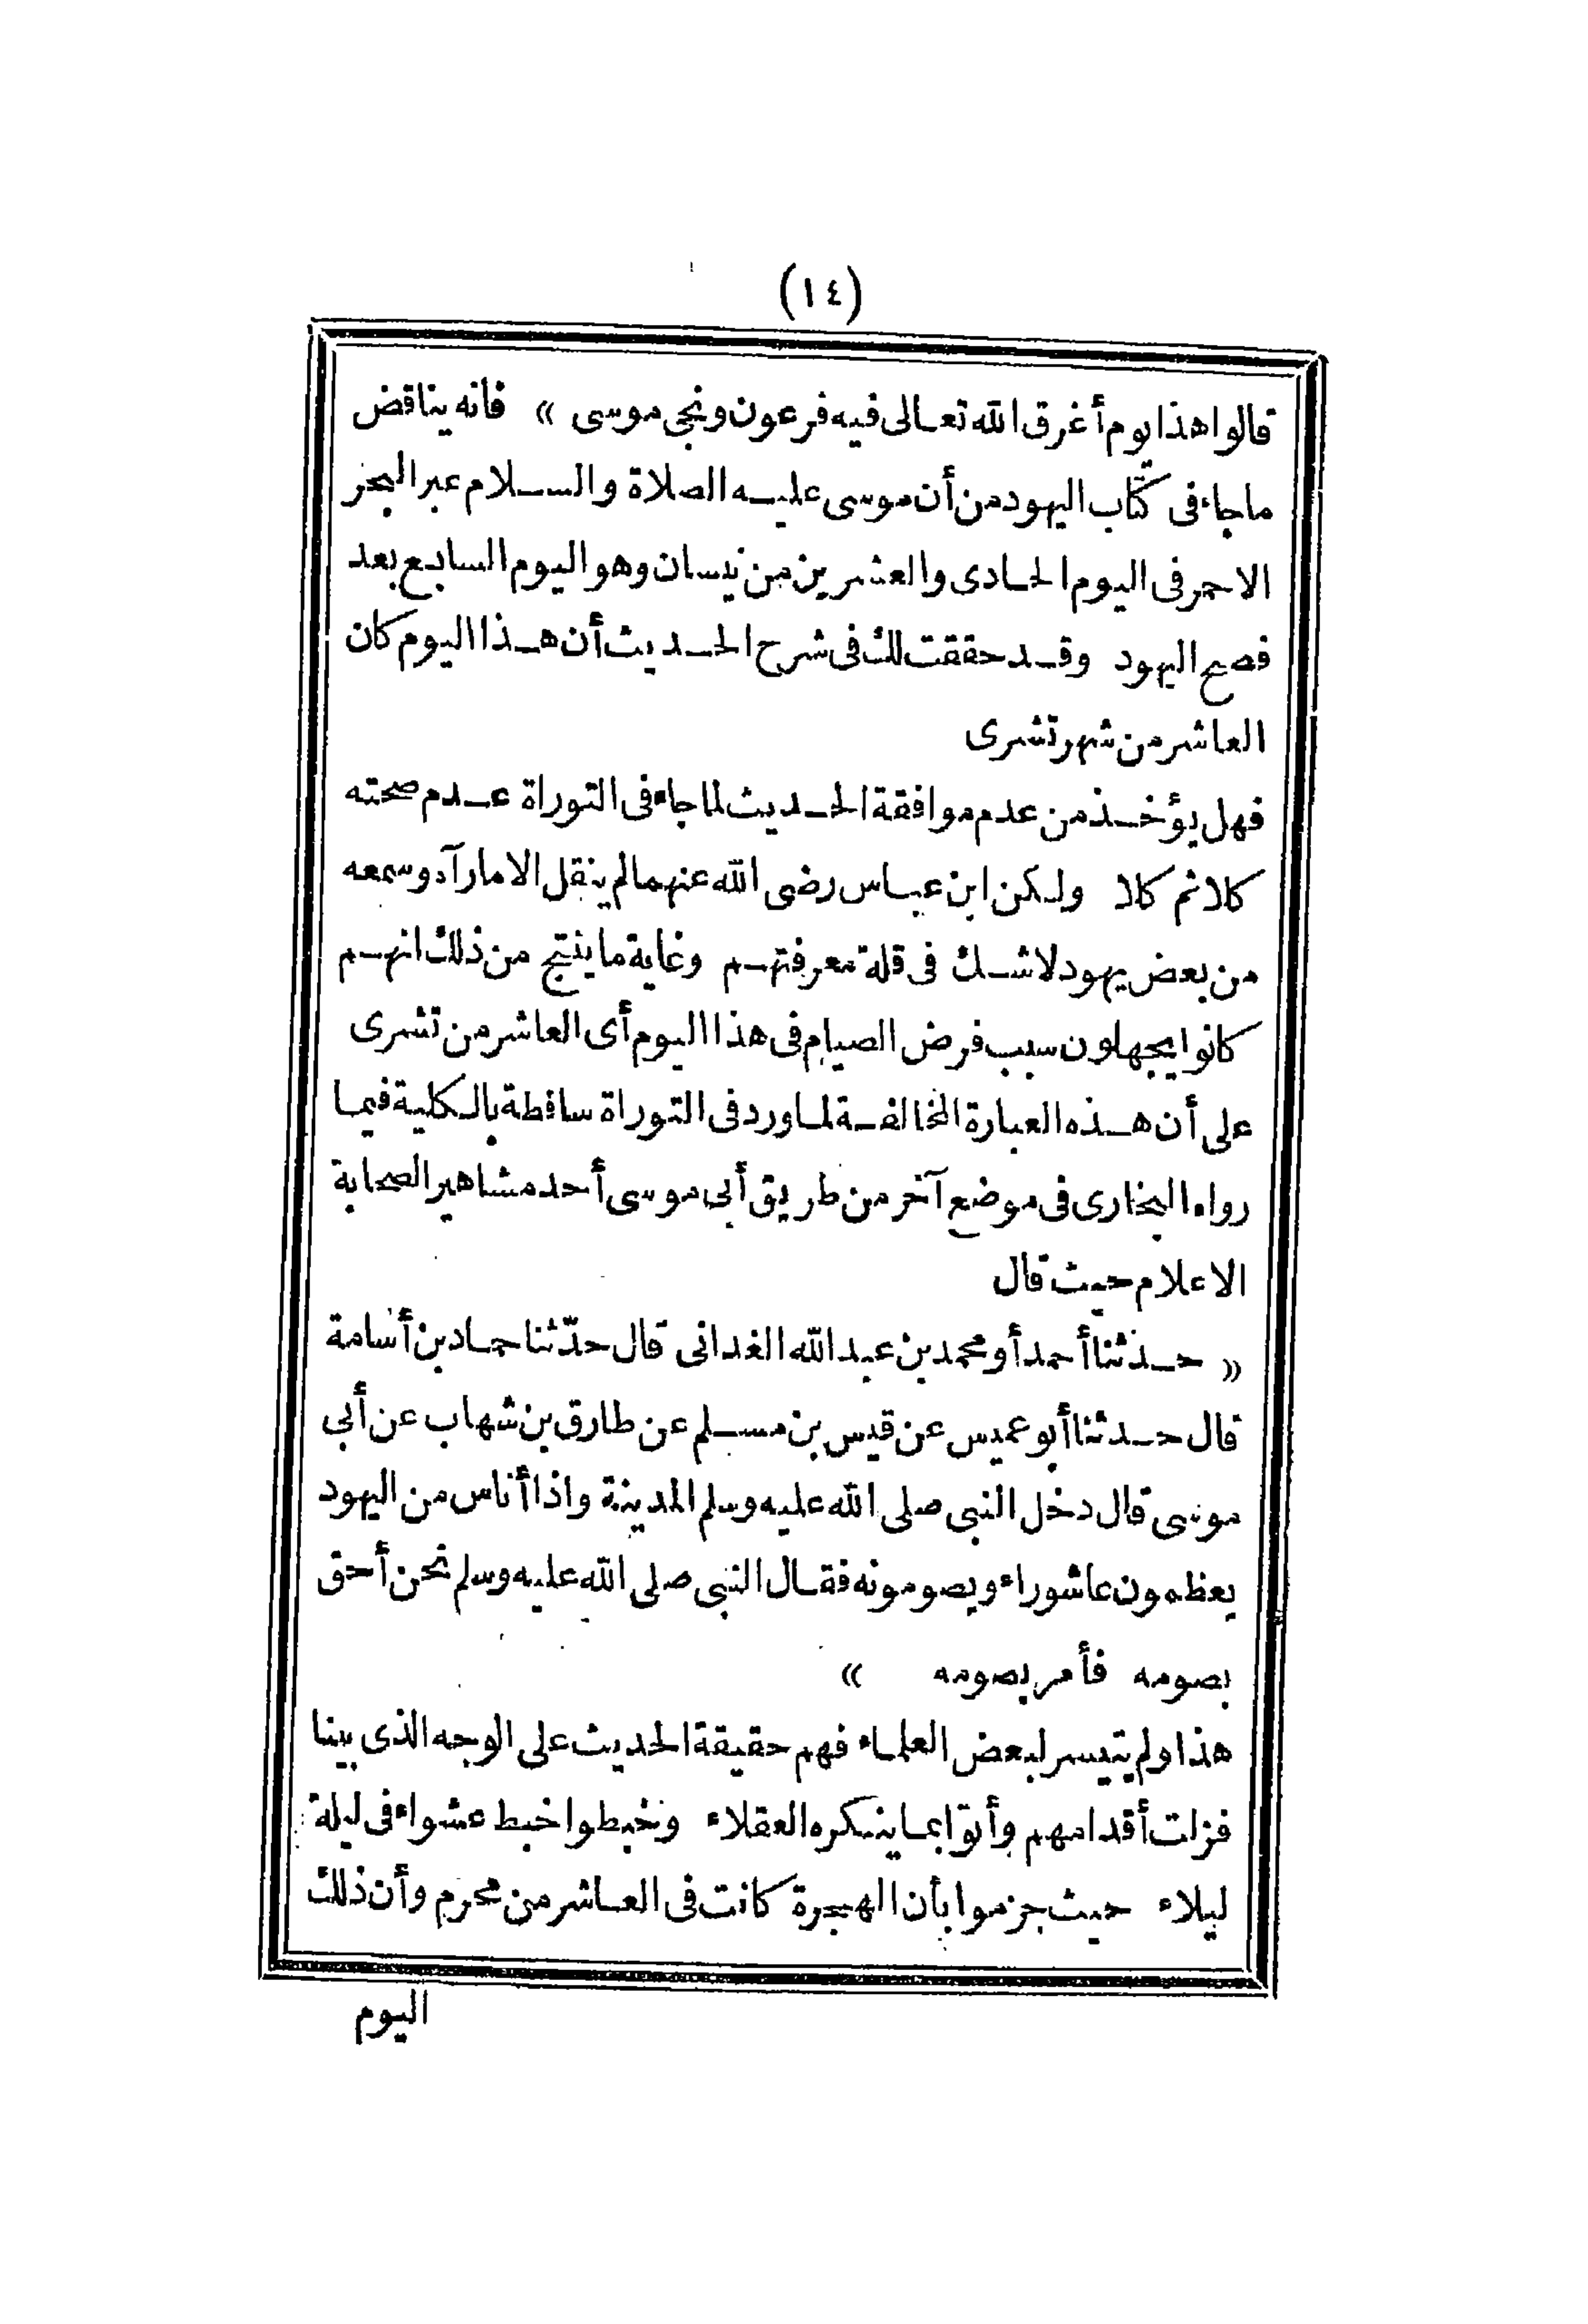 (١٤)
قالوا هذا يوم أغرق الله تعالى فيه فرعون ونجى موسى » فانه يناقض
ماجاء فى كتّاب اليهود من أن موسى عليه الصلاة والسلام عبر البحر
الاحمر فى اليوم الحادى والعشرين من نيسان وهو اليوم السابع بعد
فصح اليهود وقد حققت لك فى شرح الحديث أن هذا اليوم كان
العاشر من شهر تشرى
فهل يؤخذ من عدم موافقة الحديث لما جاء فى التوراة عدم صحته
كلا ثم كلا ولكن ابن عباس رضى الله عنهما لم ينقل الا ما رآه وسمعه
من بعض يهود لاشك فى قلة معرفتهم وغاية ما ينتج من ذلك انهم
كانوا يجهلون سبب فرض الصيام فى هذا اليوم أى العاشر من تشرى
على أن هذه العبارة المخالفة لما ورد فى التوراة ساقطة بالكلية فيما
رواه البخارى فى موضع آخر من طريق أبى موسى أحد مشاهير الصحابة
الاعلام حيث قال
« حدثنا أحمد أو محمد بن عبد الله الغدانى قال حدّثنا حماد بن أسامة
قال حدثنا أبو عميس عن قيس بن مسلم عن طارق بن شهاب عن أبى
موسى قال دخل النبى صلى الله عليه وسلم المدينة واذا أناس من اليهود
يعظمون عاشوراء ويصومونه فقال النبى صلى الله عليه وسلم نحن أحق
بصومه فأمر بصومه »
هذا ولم يتيسر لبعض العلماء فهم حقيقة الحديث على الوجه الذى بينا
فزلت أقدامهم وأتوا بما ينكره العقلاء وخبطوا خبط عشواء فى ليلة
ليلاء حيث جزموا بأن الهجرة كانت فى العاشر من محرم وأن ذلك
اليوم